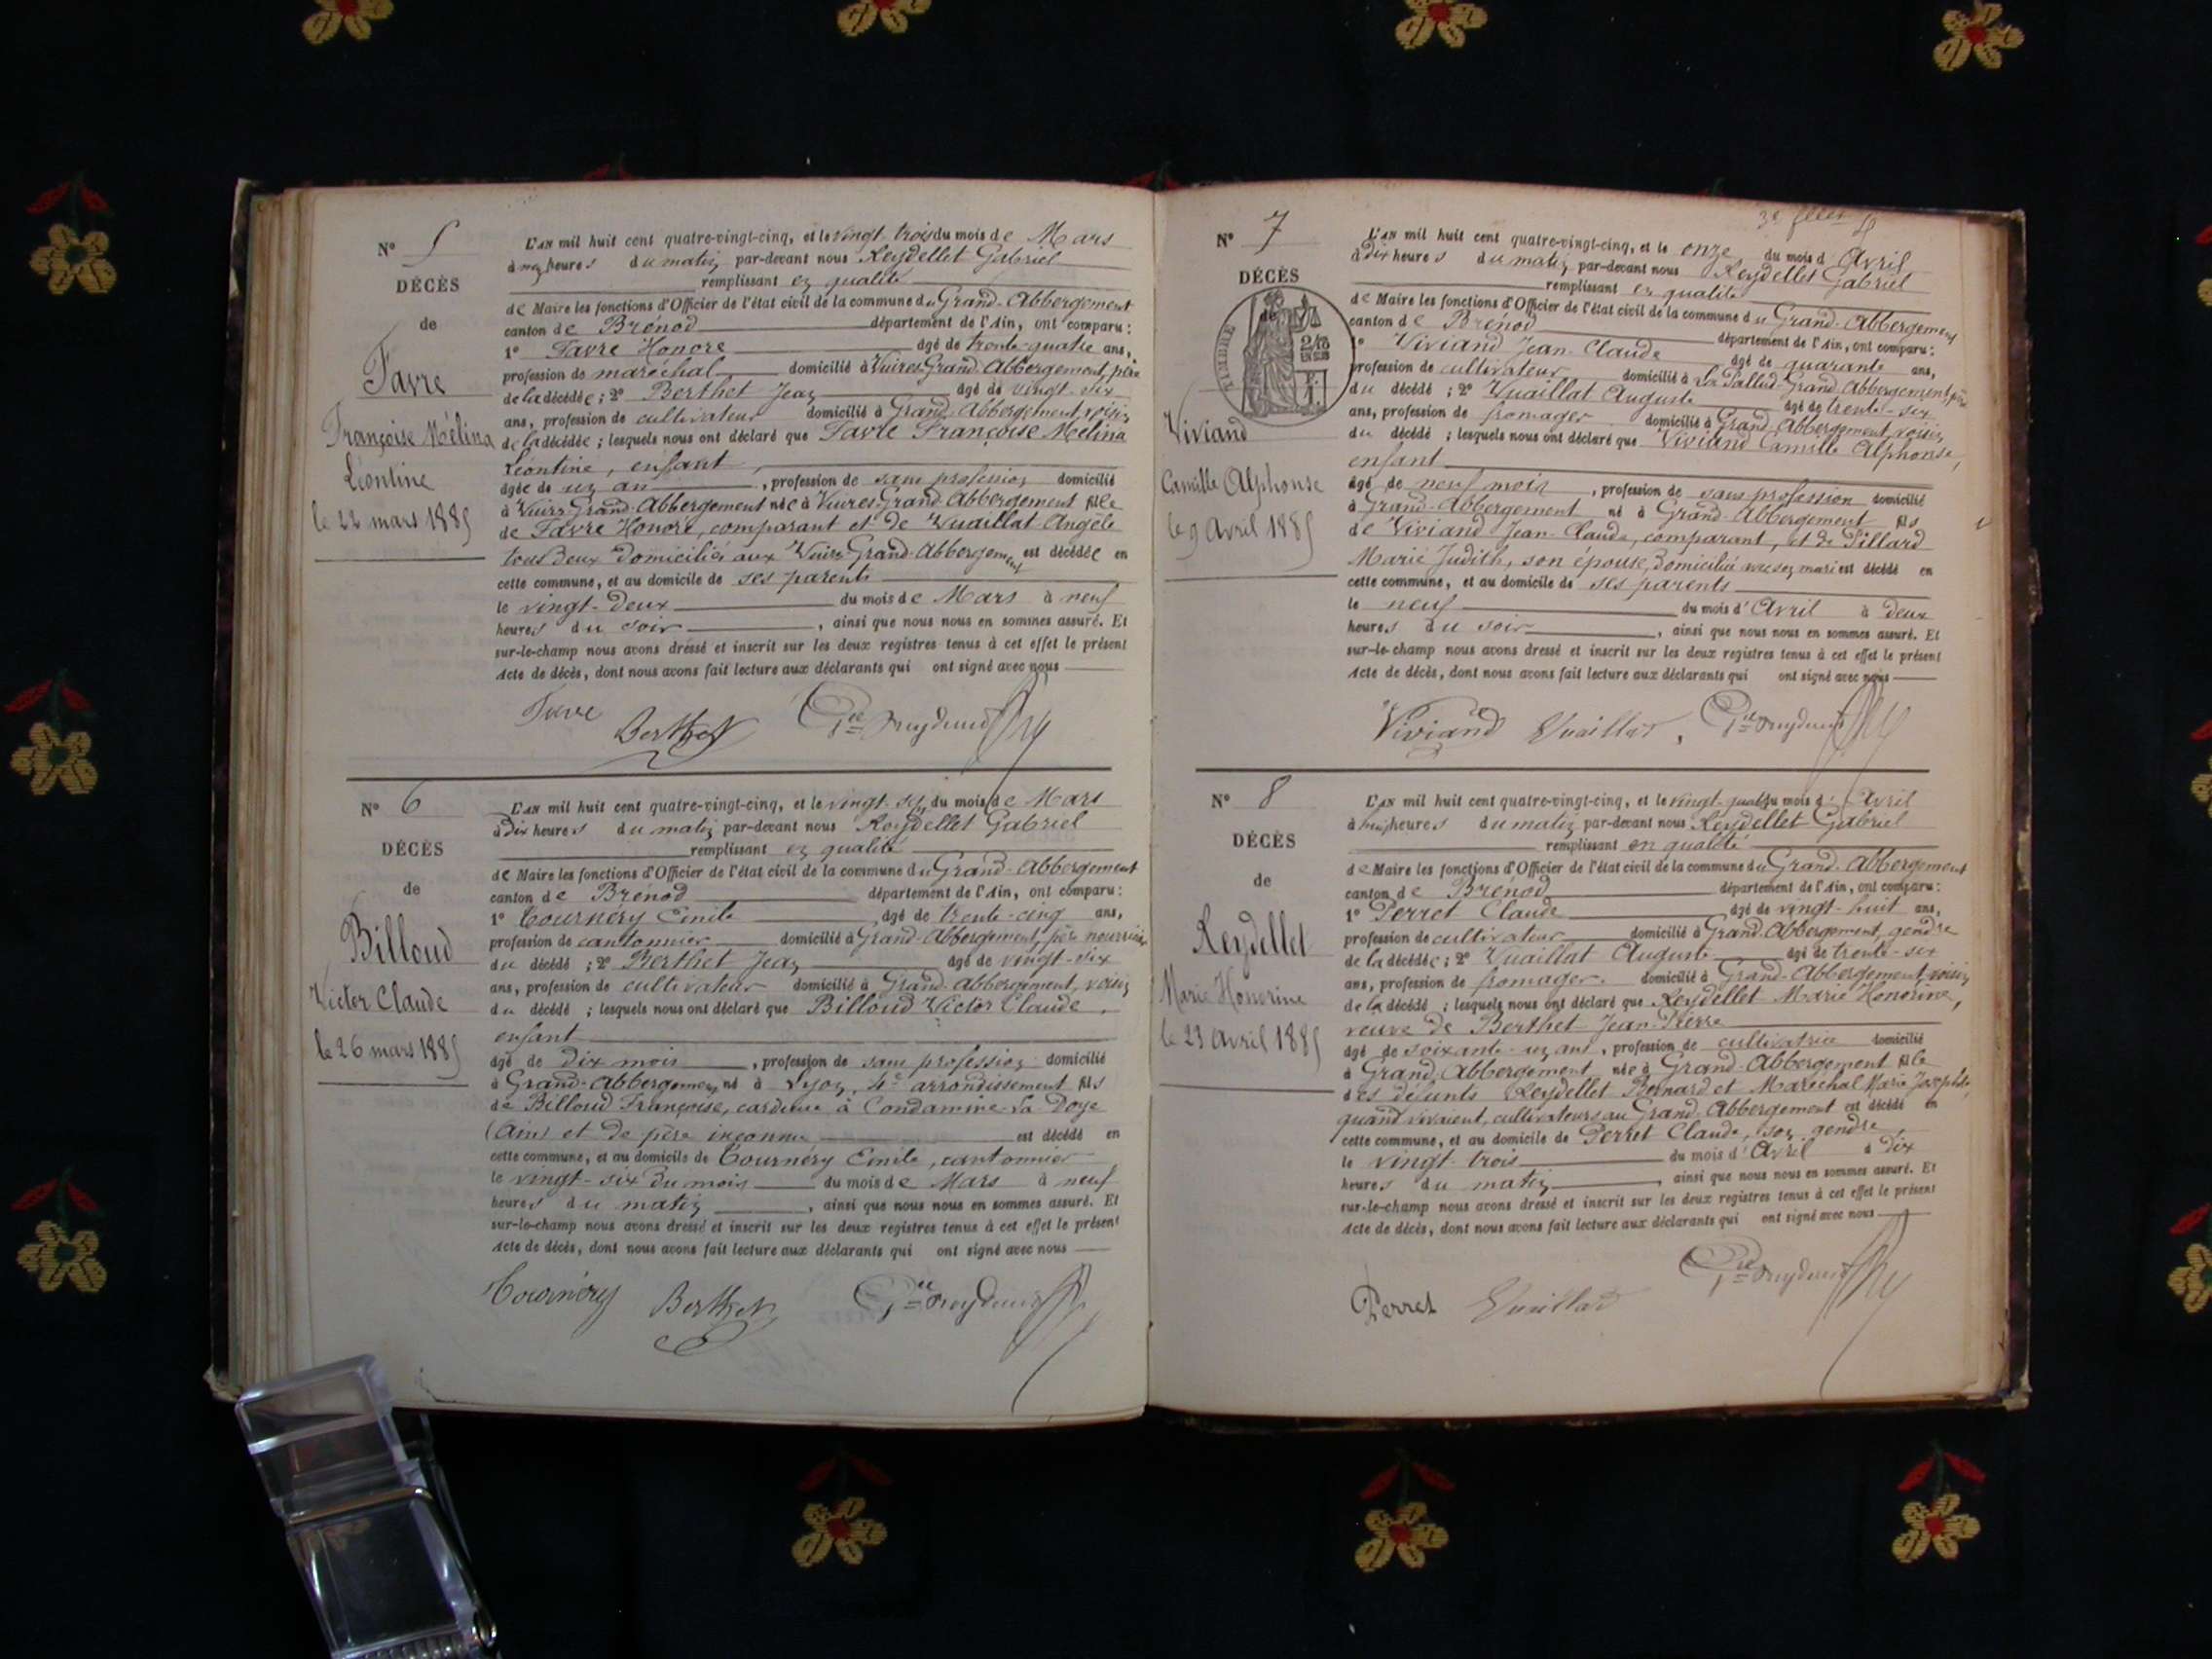 N° 5
DÉCÈS
de
Favre
Françoise Mélina
Léontine
le 22 mars 1885
L'an mil huit cent quatre-vingt-cinq, et le vingt-trois du mois de Mars
à heures du matin par-devant nous Reydellet Gabriel
remplissant en qualité
de Maire les fonctions d'Officier de l'état civil de la commune du Grand-Abbergement
canton de Brénod département de l'Ain, ont comparu :
1° Favre Honoré âgé de trente-quatre ans,
profession de maréchal domicilié à Vuires Grand-Abbergement, père
de la décédée ; 2° Berthet Jean âgé de vingt-six
ans, profession de cultivateur domicilié à Grand-Abbergement, voisin
de la décédée ; lesquels nous ont déclaré que Favre Françoise Mélina
Léontine, enfant,
âgée de un an, profession de sans profession domicilié
à Vuires Grand-Abbergement née à Vuires Grand-Abbergement fille
de Favre Honoré, comparant et de Vuaillat Angèle
tous deux domiciliés aux Vuires Grand-Abbergement est décédée en
cette commune, et au domicile de ses parents
le vingt-deux du mois de Mars à neuf
heures du soir, ainsi que nous nous en sommes assuré. Et
sur-le-champ nous avons dressé et inscrit sur les deux registres tenus à cet effet le présent
Acte de décès, dont nous avons fait lecture aux déclarants qui ont signé avec nous
Favre Berthet
N° 6
DÉCÈS
de
Billoud
Victor Claude
le 26 mars 1885
L'an mil huit cent quatre-vingt-cinq, et le vingt-sep du mois de Mars
à dix heures du matin par-devant nous Reydellet Gabriel
remplissant en qualité
de Maire les fonctions d'Officier de l'état civil de la commune du Grand-Abbergement
canton de Brénod département de l'Ain, ont comparu :
1° Tournéry Emile âgé de trente-cinq ans,
profession de cantonnier domicilié à Grand-Abbergement, père nourricier
du décédé ; 2° Berthet Jean âgé de vingt-six
ans, profession de cultivateur domicilié à Grand-Abbergement, voisin
du décédé ; lesquels nous ont déclaré que Billoud Victor Claude,
enfant
âgé de dix mois, profession de sans profession domicilié
à Grand-Abbergement né à Lyon, 4e arrondissement fils
de Billoud Françoise, cardeuse à Condamine-la-Doye
(Ain) et de père inconnu est décédé en
cette commune, et au domicile de Tournéry Emile, cantonnier
le vingt-six du mois du mois de Mars à neuf
heures du matin, ainsi que nous nous en sommes assuré. Et
sur-le-champ nous avons dressé et inscrit sur les deux registres tenus à cet effet le présent
Acte de décès, dont nous avons fait lecture aux déclarants qui ont signé avec nous
Tournéry Berthet
3e
N° 7
DÉCÈS
de
TIMBRE
Viviand
Camille Alphonse
le 9 Avril 1885
L'an mil huit cent quatre-vingt-cinq, et le onze du mois d'Avril
à dix heures du matin par-devant nous Reydellet Gabriel
remplissant en qualité
de Maire les fonctions d'Officier de l'état civil de la commune du Grand-Abbergement
canton de Brénod département de l'Ain, ont comparu :
1° Viviand Jean-Claude âgé de quarante ans,
profession de cultivateur domicilié à La Pallud Grand-Abbergement, père
du décédé ; 2° Vuaillat Auguste âgé de trente-six
ans, profession de fromager domicilié à Grand-Abbergement, voisin
du décédé ; lesquels nous ont déclaré que Viviand Camille Alphonse,
enfant
âgé de neuf mois, profession de sans profession domicilié
à Grand-Abbergement né à Grand-Abbergement fils
de Viviand Jean-Claude, comparant, et de Pillard
Marie Judith, son épouse, domiciliée avec son mari est décédé en
cette commune, et au domicile de ses parents
le neuf du mois d'Avril à deux
heures du soir, ainsi que nous nous en sommes assuré. Et
sur-le-champ nous avons dressé et inscrit sur les deux registres tenus à cet effet le présent
Acte de décès, dont nous avons fait lecture aux déclarants qui ont signé avec nous
Viviand Vuaillat
N° 8
DÉCÈS
de
Reydellet
Marie Honorine
le 23 avril 1885
L'an mil huit cent quatre-vingt-cinq, et le vingt-quatre du mois d'Avril
à heures du matin par-devant nous Reydellet Gabriel
remplissant en qualité
de Maire les fonctions d'Officier de l'état civil de la commune du Grand-Abbergement
canton de Brénod département de l'Ain, ont comparu :
1° Perret Claude âgé de vingt-huit ans,
profession de cultivateur domicilié à Grand-Abbergement, gendre
de la décédée ; 2° Vuaillat Auguste âgé de trente-six
ans, profession de fromager domicilié à Grand-Abbergement, voisin
de la décédé ; lesquels nous ont déclaré que Reydellet Marie Honorine,
veuve de Berthet Jean-Pierre
âgé de soixante-un ans, profession de cultivatrice domicilié
à Grand Abbergement née à Grand-Abbergement fille
des défunts Reydellet Bernard et Maréchal Marie Josephte,
quand vivaient, cultivateurs au Grand-Abbergement est décédé en
cette commune, et au domicile de Perret Claude, son gendre,
le vingt-trois du mois d'Avril à dix
heures du matin, ainsi que nous nous en sommes assuré. Et
sur-le-champ nous avons dressé et inscrit sur les deux registres tenus à cet effet le présent
Acte de décès, dont nous avons fait lecture aux déclarants qui ont signé avec nous
Perret Vuaillat